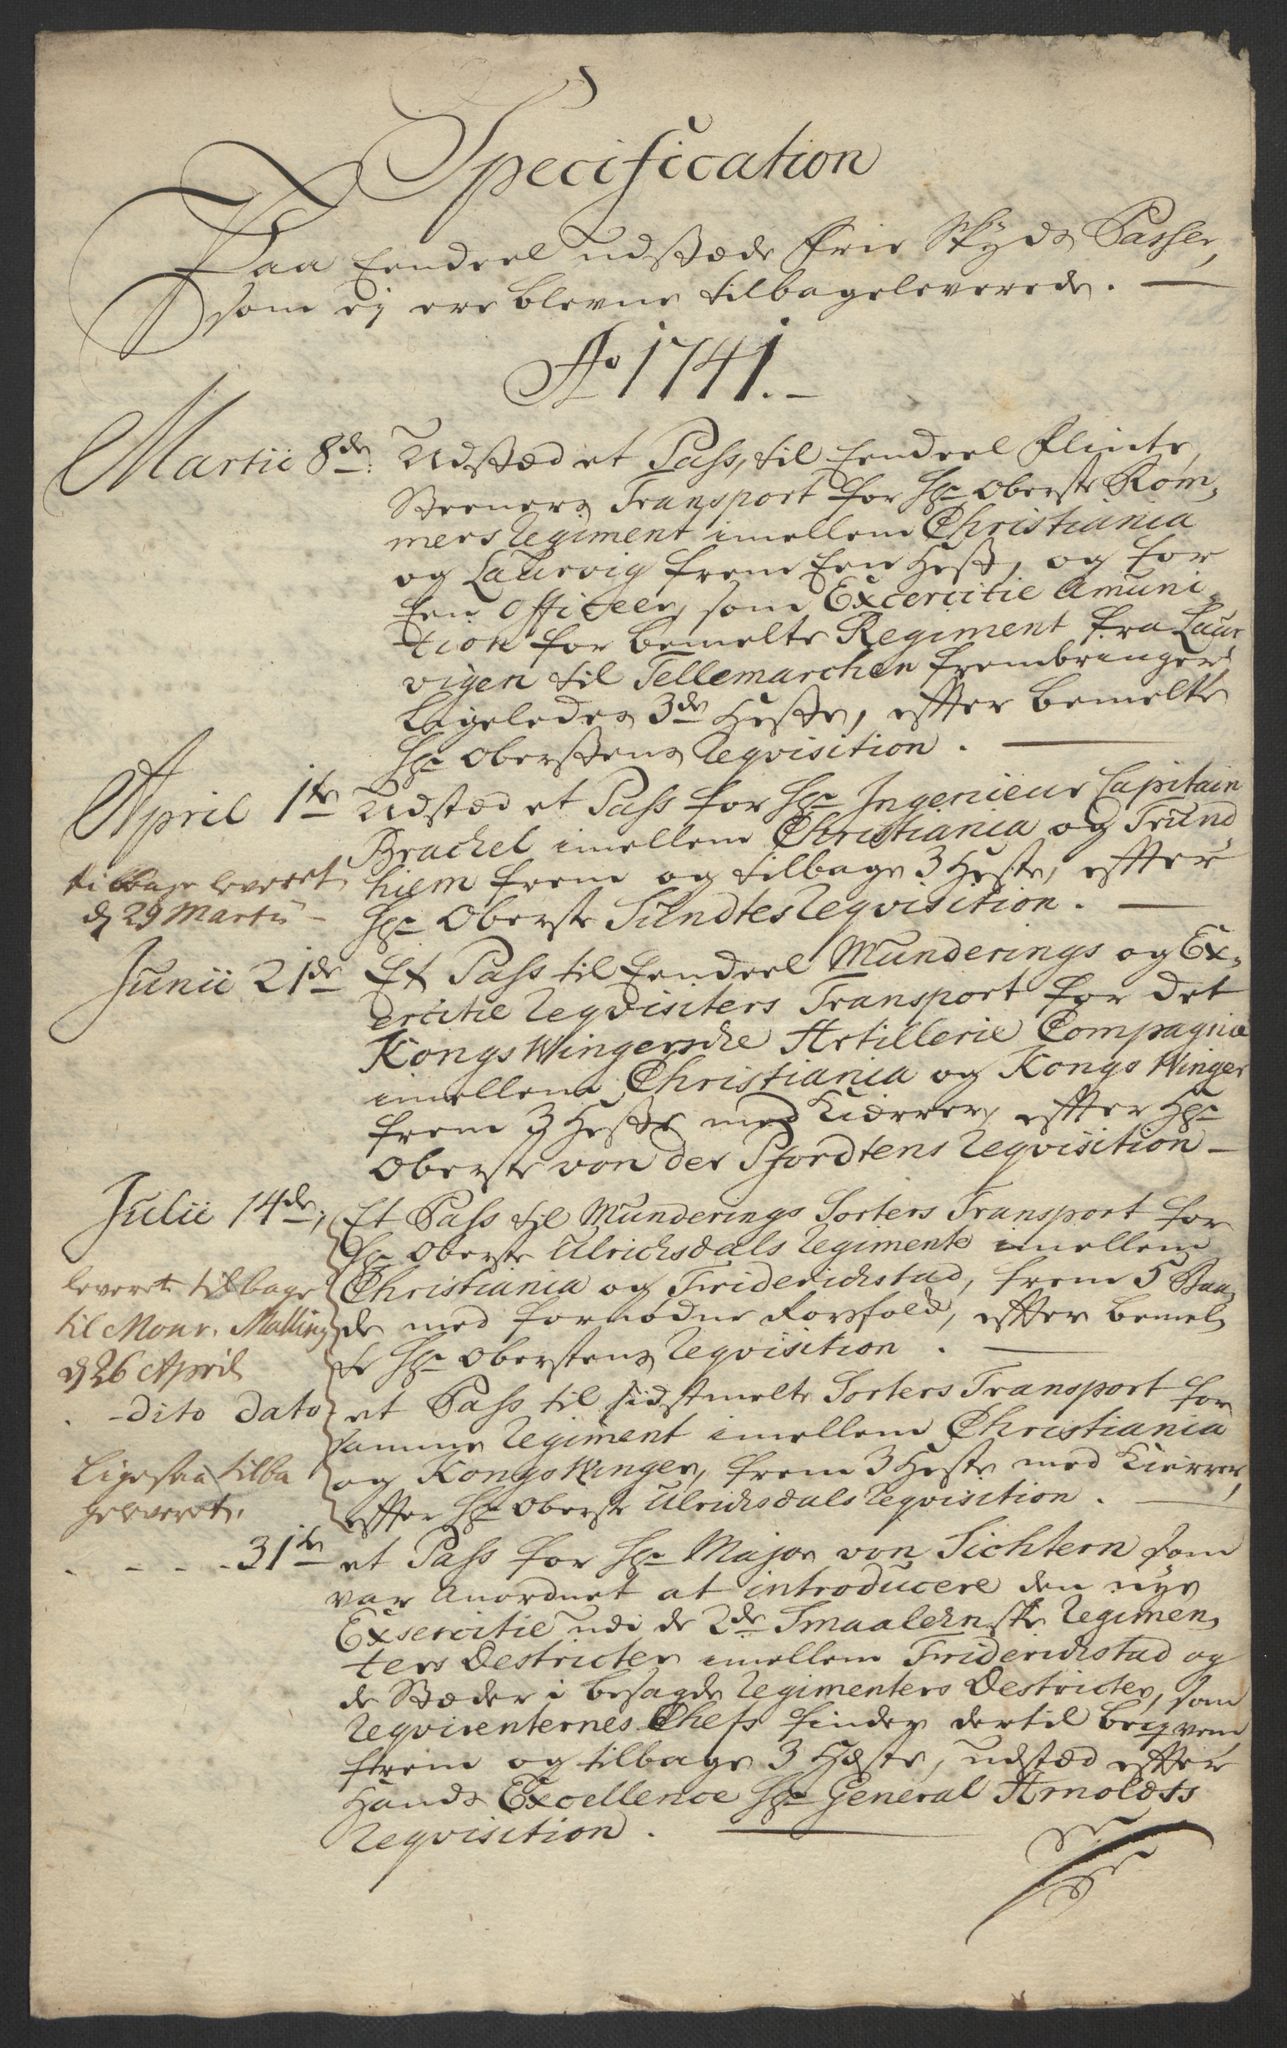 Specification
Paa Eendeel udstædde Frie Skyds Passer,
som ej ere blevne tilbageleverede. —
Ao 1741. —
Martii 8de. Udstæd et Pass, til Eendeel Flinte,
Steeners Transport for Hr Oberste Röm,
mers Regiment imellem Christiania
og Laurvig frem Een Hest, og for
Een Officeer, som Excercitie Amuni,
tion for bemelte Regiment fra Laur,
vigen til Tellemarchen frembringer
Ligeledes 3de Heste, efter bemelte
Hr Oberstens Reqvisition. —
April 1te Udstæd et Pass for Hr Ingenieur Capitain
Brachel imellem Christiania og Trund
hiem frem og tilbage 3 Heste, efter
Hr Oberste Sundtes Reqvisition. —
tilbage leveret
d 29 Martii —
Junii 21de Et Pass til Eendeel Munderings og Ex,
ercitie Reqvisiters Transport for det
Kongs Wingerske Artillerie Compagnie
imellem Christiania og Kongs Winger
frem 3 Heste med Kiærrer, efter Hr
Oberste von der Pfordtens Reqvisition —
Julii 14de, Et Pass til Munderings Sorters Transport for
Hr Oberste Ulrichsdals Regimente imellem
Christiania og Friderichstad, frem 5 Baa,
de med fornødne Rorsfolck, efter bemel,
te Hr Oberstens Reqvisition. —
leveret tilbage
til Monr. Malling
d 26 April
- dito dato et Pass til sidstmelte Sorters Transport for
samme Regiment imellem Christiania
og Kongs Winger, frem 3 Heste med Kierrer,
efter Hr Oberste Ulrichsdals Reqvisition. —
Ligesaa tilba
geleveret.
- - - - 31te et Pass for Hr Major von Sichtern som
var Anordnet at introducere den nye
Exsercitie udi de 2de Smaalehnske Regimen,
ters Destricter imellem Friderichstad og
de Stæder i besagde Regimenters Destricter, som
Reqvirenternes Chefs finder dertil beqvem
frem og tilbage 3 Heste, udstæd efter
Hands Excellence Hr General Arnoldts
Reqvisition. —